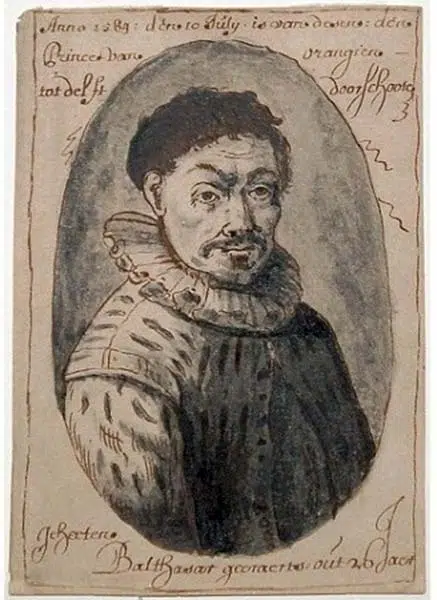 Anno 1584: den 10 July · is van desen: den
Prince van urangien
tot delft doorschooten
Geheeten
Balthasar geeraerts · out 26 Jaer